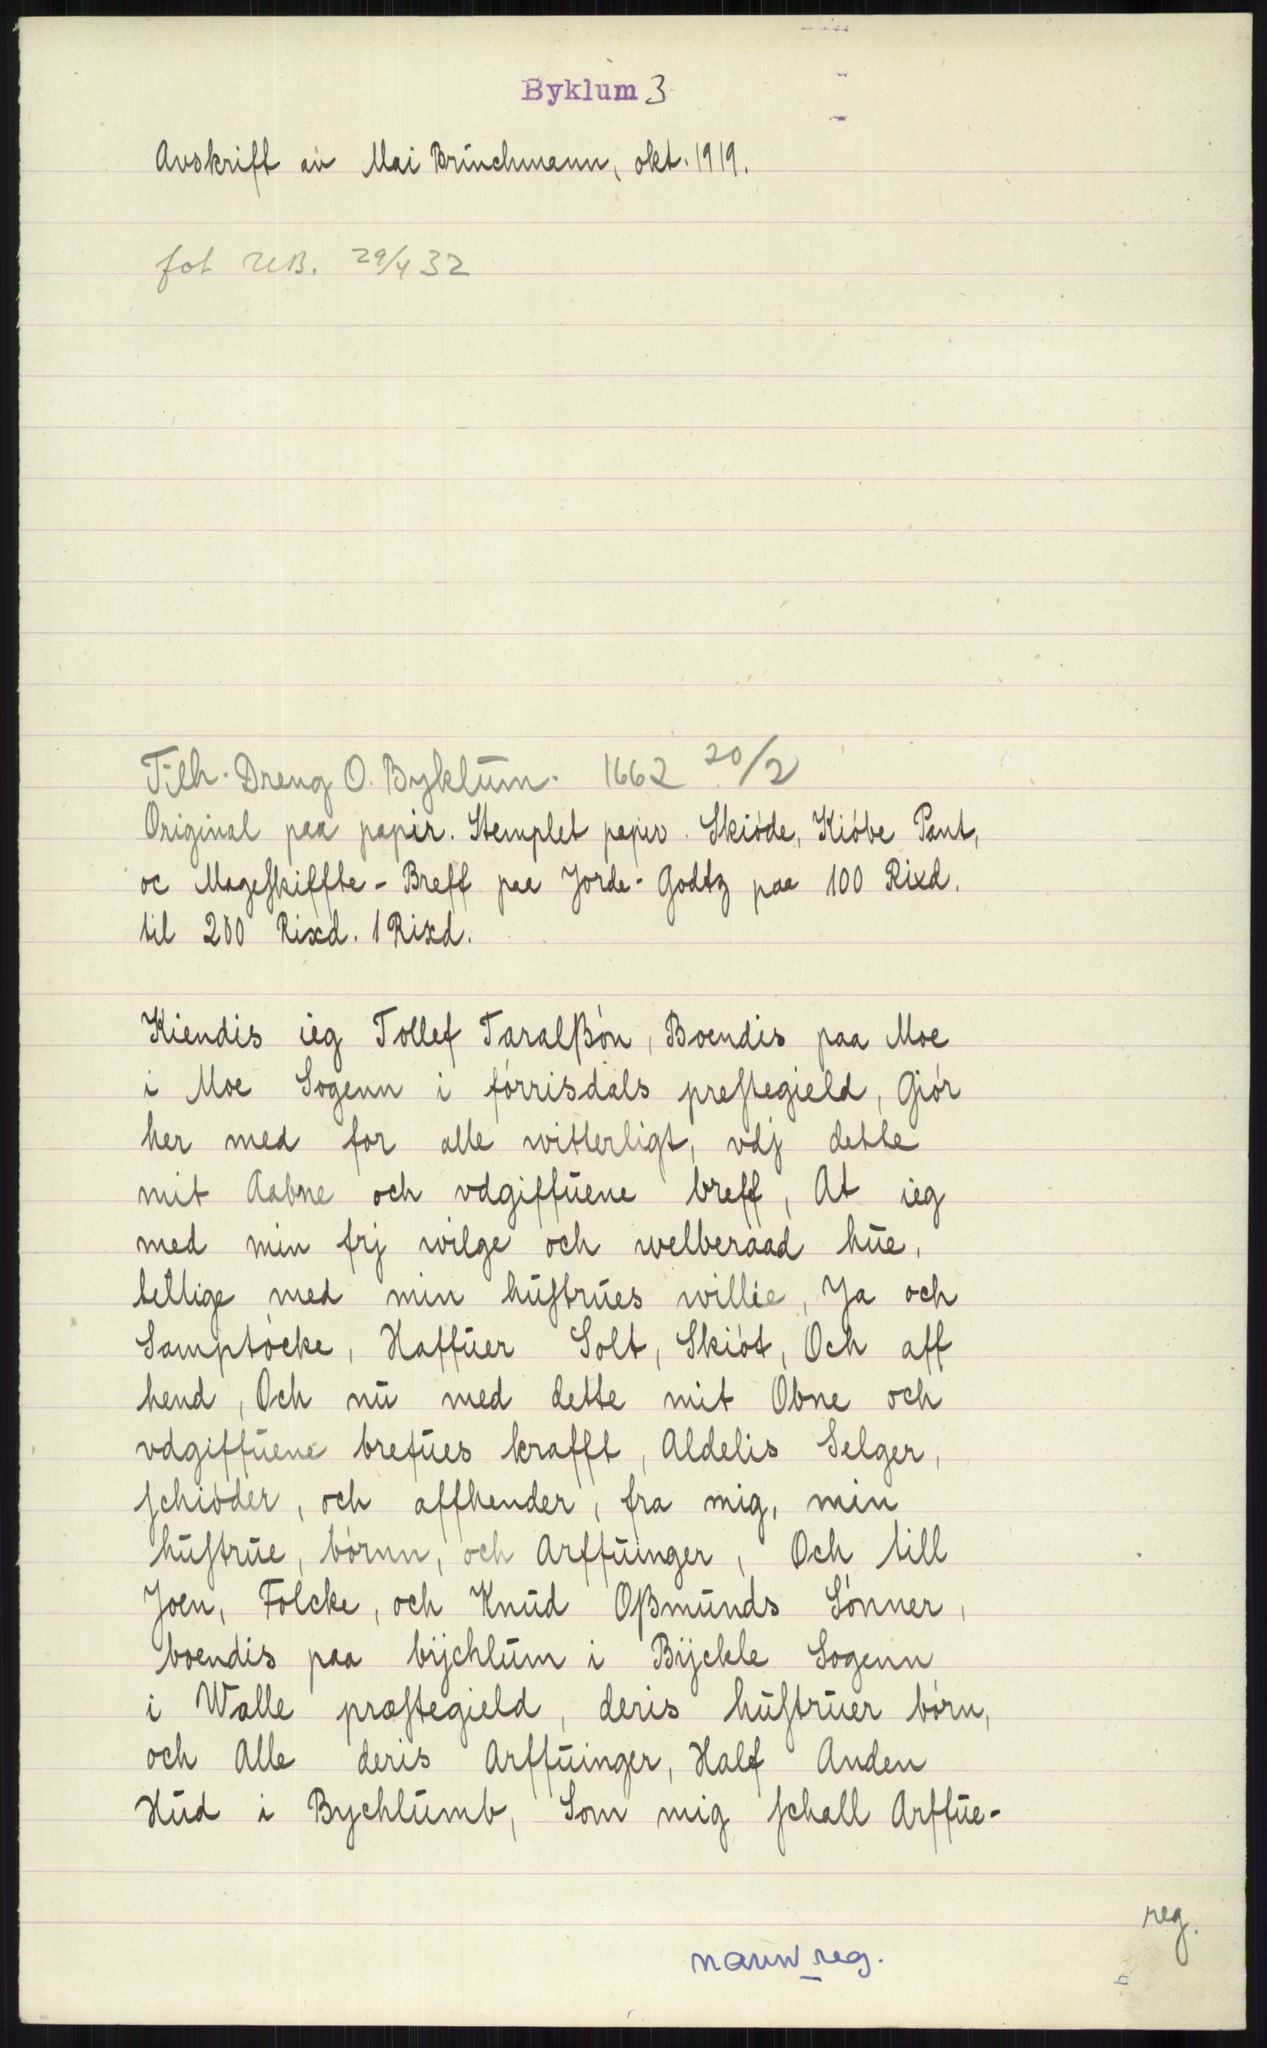 Byklum 3
Avskrift av Mai Brünchmann, okt. 1919.
fot UB. 29/4 32
Tilh. Dreng O. Byklum. 1662 20/2
Original paa papir. Stemplet papir. Skiöde, Kiöbe Pant,
oc Mageskiffte-Breff paa Jorde-Godtz paa 100 Rixd.
til 200 Rixd. 1 Rixd.
Kiendis ieg Tollef Taralßón, Boendis paa Moe
i Moe Sogenn i fórrisdals prestegield, Giór
her med for alle witterligt, vdj dette
mit Aabne och vdgiffuene breff, At ieg
med min frj wilge och welberaad hue,
tillige med min hustrues willie, Ja och
Samptócke, Haffuer Solt, Skiót, Och aff
hend, Och nu med dette mit Obne och
vdgiffuene brefues krafft, Aldelis Selger,
schióder, och affhender, fra mig, min
hustrue, bórnn, och Arffuinger, Och till
Joen, Folcke, och Knud Oßmunds Sónner,
boendis paa bÿchlum i Bÿckle Sogenn
i Walle præstegield, deris hustruer bórn,
och Alle deris Arffuinger, Half Anden
Hud i Bychlumb, Som mig schall Arffue-
reg.
navnreg.